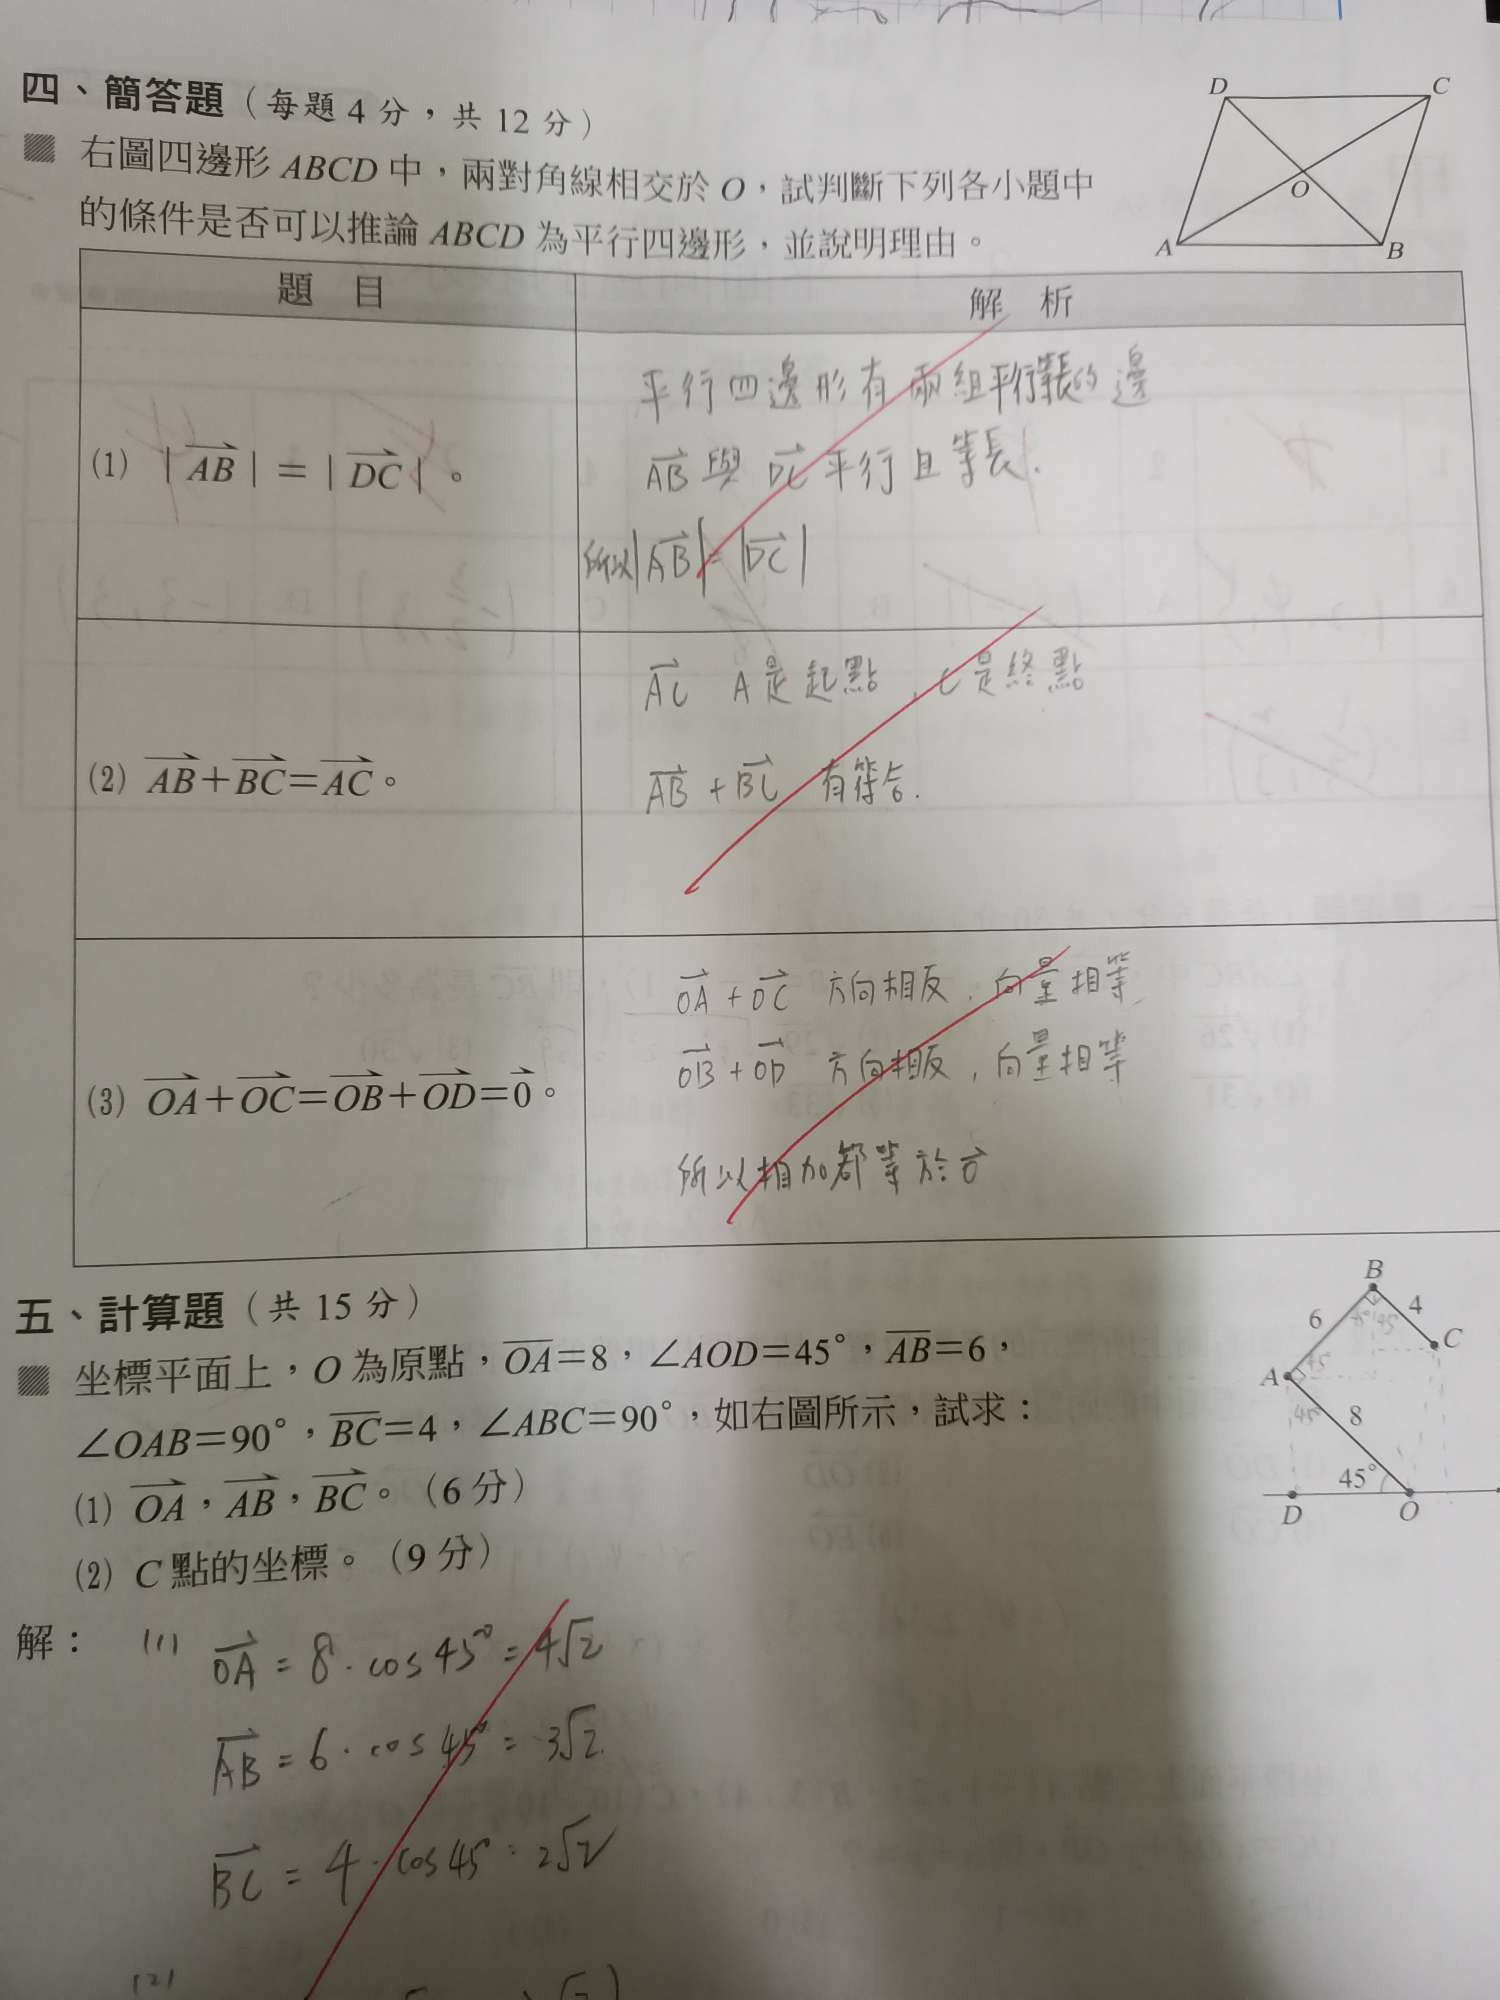 四、簡答題（每題 4 分，共 12 分）
右圖四邊形 ABCD 中，兩對角線相交於 O，試判斷下列各小題中
的條件是否可以推論 ABCD 為平行四邊形，並說明理由。
D
C
O
A
B
題 目
解 析
(1) |AB| = |DC|。
平行四邊形有兩組平行等長的邊
AB 與 DC 平行且等長.
所以|AB| = |DC|
(2) AB+BC=AC。
AC A是起點，C是終點
AB + BC 有符合.
(3) OA+OC=OB+OD=0。
OA + OC 方向相反，向量相等
OB + OD 方向相反，向量相等
所以相加都等於 0
五、計算題（共 15 分）
坐標平面上，O 為原點，OA=8，∠AOD=45°，AB=6，
∠OAB=90°，BC=4，∠ABC=90°，如右圖所示，試求：
(1) OA，AB，BC。（6 分）
(2) C 點的坐標。（9 分）
B
6
4
C
45°
A
45°
45°
8
45°
D
O
解：
(1) OA = 8 · cos 45° = 4√2
AB = 6 · cos 45° = 3√2
BC = 4 · cos 45° = 2√2
(2)